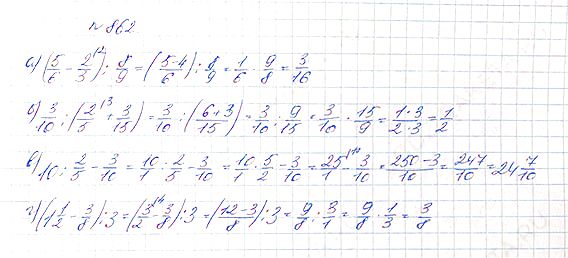 № 862.
а) (5/6 - 2/3^(2)) : 8/9 = (5-4/6) : 8/9 = 1/6 · 9/8 = 3/16
б) 3/10 : (2/5^(3) + 3/15) = 3/10 : (6+3/15) = 3/10 : 9/15 = 3/10 · 15/9 = 1·3/2·3 = 1/2
в) 10 : 2/5 - 3/10 = 10/1 : 2/5 - 3/10 = 10/1 · 5/2 - 3/10 = 25/1^(10) - 3/10 = 250-3/10 = 247/10 = 24 7/10
г) (1 1/2 - 3/8) : 3 = (3/2^(4) - 3/8) : 3 = (12-3/8) : 3 = 9/8 : 3/1 = 9/8 · 1/3 = 3/8